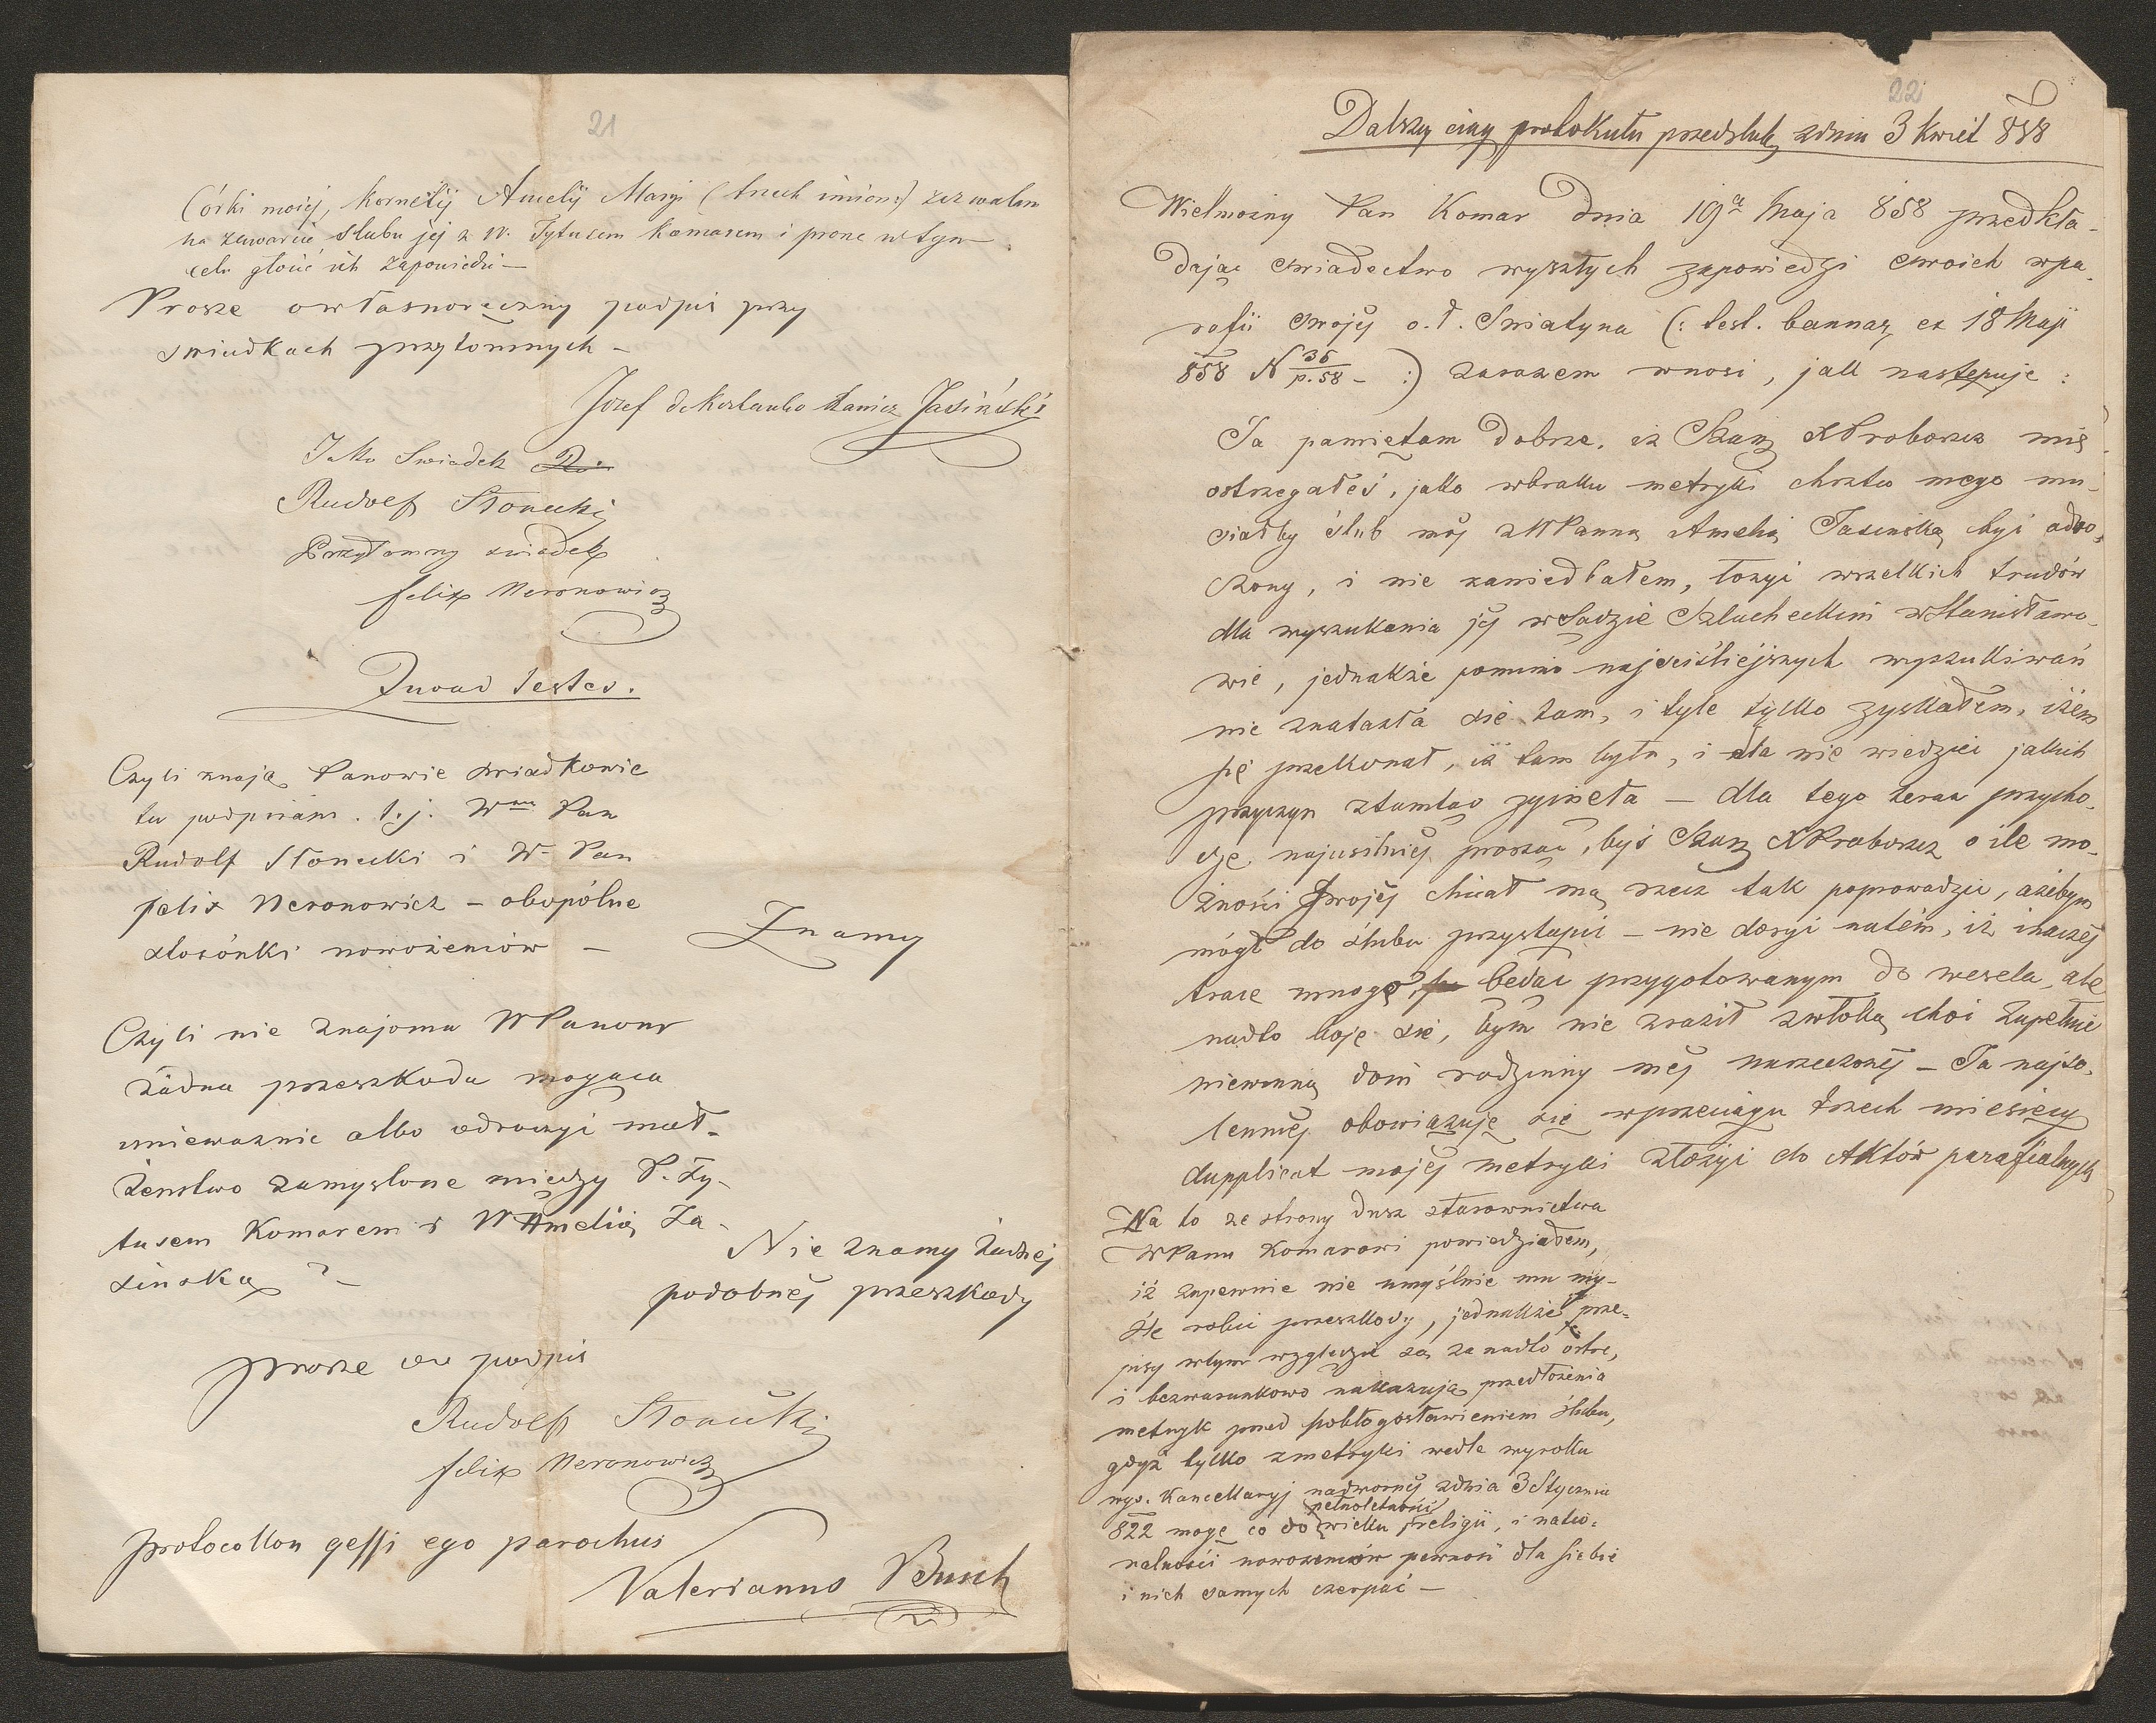 21
Córki mojej, Kornelij Amelij Maryi (trzech imion:) zezwalam
na zawarcie slubu jej z W. Tytusem Komarem i prosze w tym
celu głosić ich zapowiedzi —
Prosze o własnoręczny podpis przy
swiadkach przytomnych —
Jozef Jasiński
Jako Swiadek
Rudolf Słonecki
Przytomny swiadek
felix Neronowicz
Quoad testes.
Czyli znają Panowie swiadkowie
tu podpisani. t.j. W Pan
Rudolf Słonecki i W Pan
felix Neronowicz – obopólne
stosónki nowożeniów —
Znamy
Czyli nie znajoma WPanom
żadna przeszkoda mogąca
uniewaznic albo odroczyć mał-
żenstwo zamyslone między P. Ty-
tusem Komarem i W Amelią Ja-
sinską ? –
Nie znamy żadnej
podobnéj przeszkody
prosze oo podpis
Rudolf Słonecki
felix Neronowicz
protocollon gessi ego parochus
Valerianus Bunch
22
Dalszy ciąg protokułu przedslub, z dnia 3 Kwiet 858
Wielmożny Pan Komar dnia 19a Maja 858 przedkła-
dając swiadectwo wyszłych zapowiedzi swoich w pa-
rafii swojéj o. ł. Sniatyna (: test. bannar, ex 18 Maji
858 N 36/p. 58 – :) zarazem wnosi, jak następuje :
Ja pamiętam dobrze, iż Xdz Proboszcz mię
ostrzegałeś, jako w braku metryki chrztu mego mu-
siałby ślub mój z WPanną Amelią Jasinską być odro-
czony, i nie zaniedbałem, łożyć wszelkich trudów
dla wyszukania jéj w Sądzie Szlacheckim w Stanisławo-
wie, jednakże pomimo najściślejszych wyszukiwań
nie znalazła się tam, i tyle tylko zyskałem, iżem
się przekonał, iż tam była, i nie wiedzieć jakich
przyczyn ztamtąd zginęła — dla tego teraz przycho-
dzę najusilniéj prosząc, byś Proboszcz o ile mo-
żności Swojéj chciał mą rzecz tak poprowadzić, ażebym
mógł do ślubu przystąpić — nie dosyć natém, iż inaczéj
tracę mnogo, będąc przygotowanym do wesela, ale
nadto boję się, bym nie zraził zwłoką choć zupełnie
niewinną dom rodzinny méj narzeczonéj — Ja najso-
lenniéj obowiązuję się w przeciągu trzech miesięcy
dupplicat mojéj metryki złożyć do Aktów parafialnych
Na to ze strony dusz starownictwa
WPanu Komarowi powiedziałem,
iż zapewnie nie umyślnie mu my-
śle robić przeszkody, jednakże te prze-
pisy w tym względzie są za nadto ostre,
i bezwarunkowo nakazują przedłożenia
metryk przed pobłogosławieniem ślubu,
gdyż tylko z metryki wedle wyroku
wys. Kancellaryj nadwornéj z dnia 3 Stycznia
822 mogę co do pełnoletności wieku, religii, i natio-
nalności nowożeniów pewność dla siebie
i nich samych czerpać —